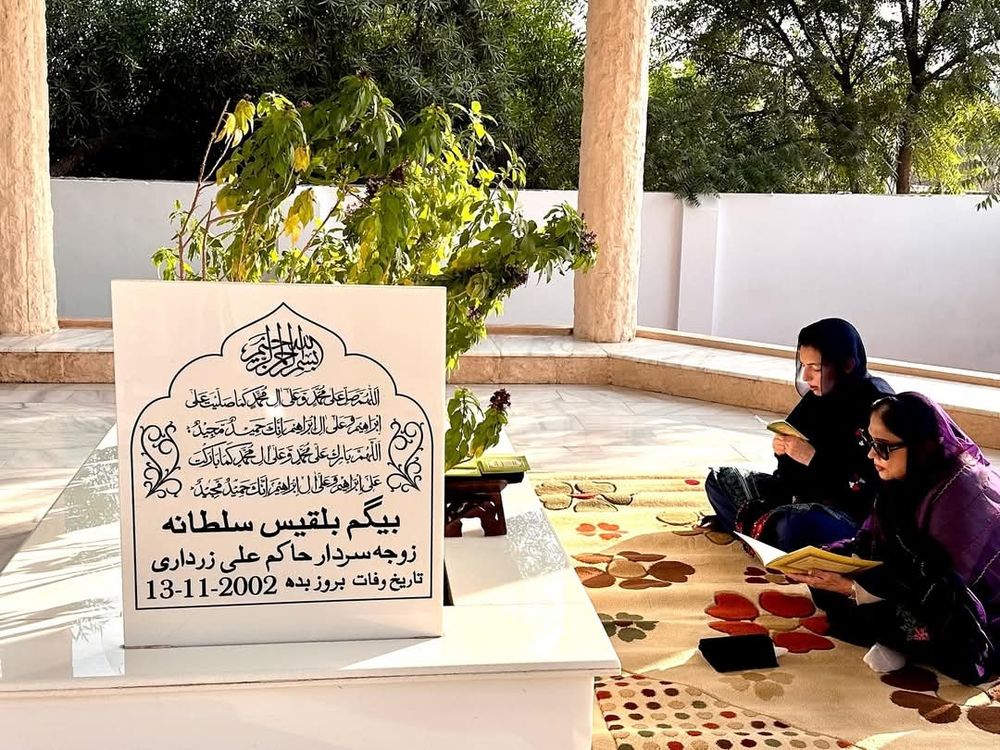 بسم الله الرحمن الرحيم
اللهم صل على محمد وعلى ال محمد كما صليت على
ابراهيم وعلى ال ابراهيم انك حميد مجيد
اللهم بارك على محمد وعلى ال محمد كما باركت
على ابراهيم وعلى ال ابراهيم انك حميد مجيد
بیگم بلقیس سلطانه
زوجه سردار حاکم علی زرداری
تاریخ وفات بروز بدھ 13-11-2002